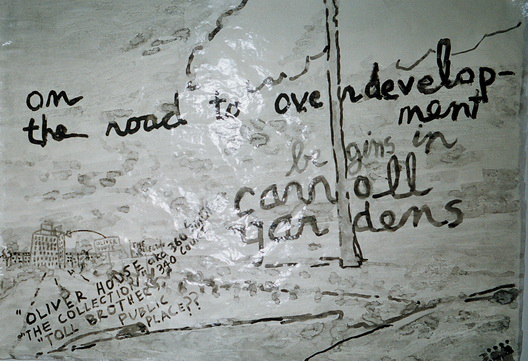 on
the road to overdevelop-
ment
begins in
carroll
gardens
"OLIVER HOUSE,
"THE COLLECTION, 340 COURT
"TOLL BROTHERS,
PUBLIC
PLACE??